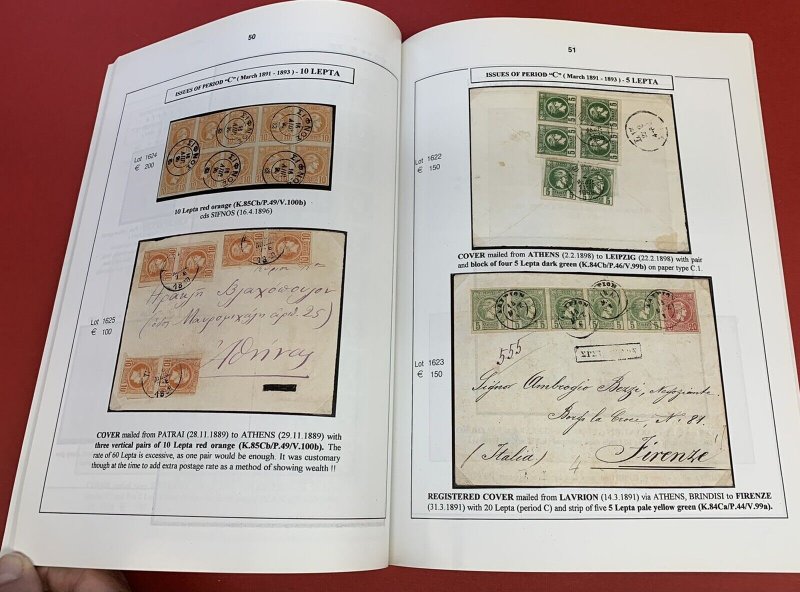 50
ISSUES OF PERIOD "C" ( March 1891 - 1893 ) - 10 LEPTA
Lot 1624
€ 200
ΣΙΦΝΟΣ
10 Lepta red orange (K.85Cb/P.49/V.100b)
cds SIFNOS (16.4.1896)
Lot 1625
€ 100
Ἀθήνας
COVER mailed from PATRAI (28.11.1889) to ATHENS (29.11.1889) with
three vertical pairs of 10 Lepta red orange (K.85Cb/P.49/V.100b). The
rate of 60 Lepta is excessive, as one pair would be enough. It was customary
though at the time to add extra postage rate as a method of showing wealth !!
51
ISSUES OF PERIOD "C" ( March 1891 - 1893 ) - 5 LEPTA
Lot 1622
€ 150
COVER mailed from ATHENS (2.2.1898) to LEIPZIG (22.2.1898) with pair
and block of four 5 Lepta dark green (K.84Cb/P.46/V.99b) on paper type C.1.
Lot 1623
€ 150
555
Signor Ambrogio Bozzi, Negoziante
Borgo la Croce, N. 81
(Italia)
Firenze
REGISTERED COVER mailed from LAVRION (14.3.1891) via ATHENS, BRINDISI to FIRENZE
(31.3.1891) with 20 Lepta (period C) and strip of five 5 Lepta pale yellow green (K.84Ca/P.44/V.99a).